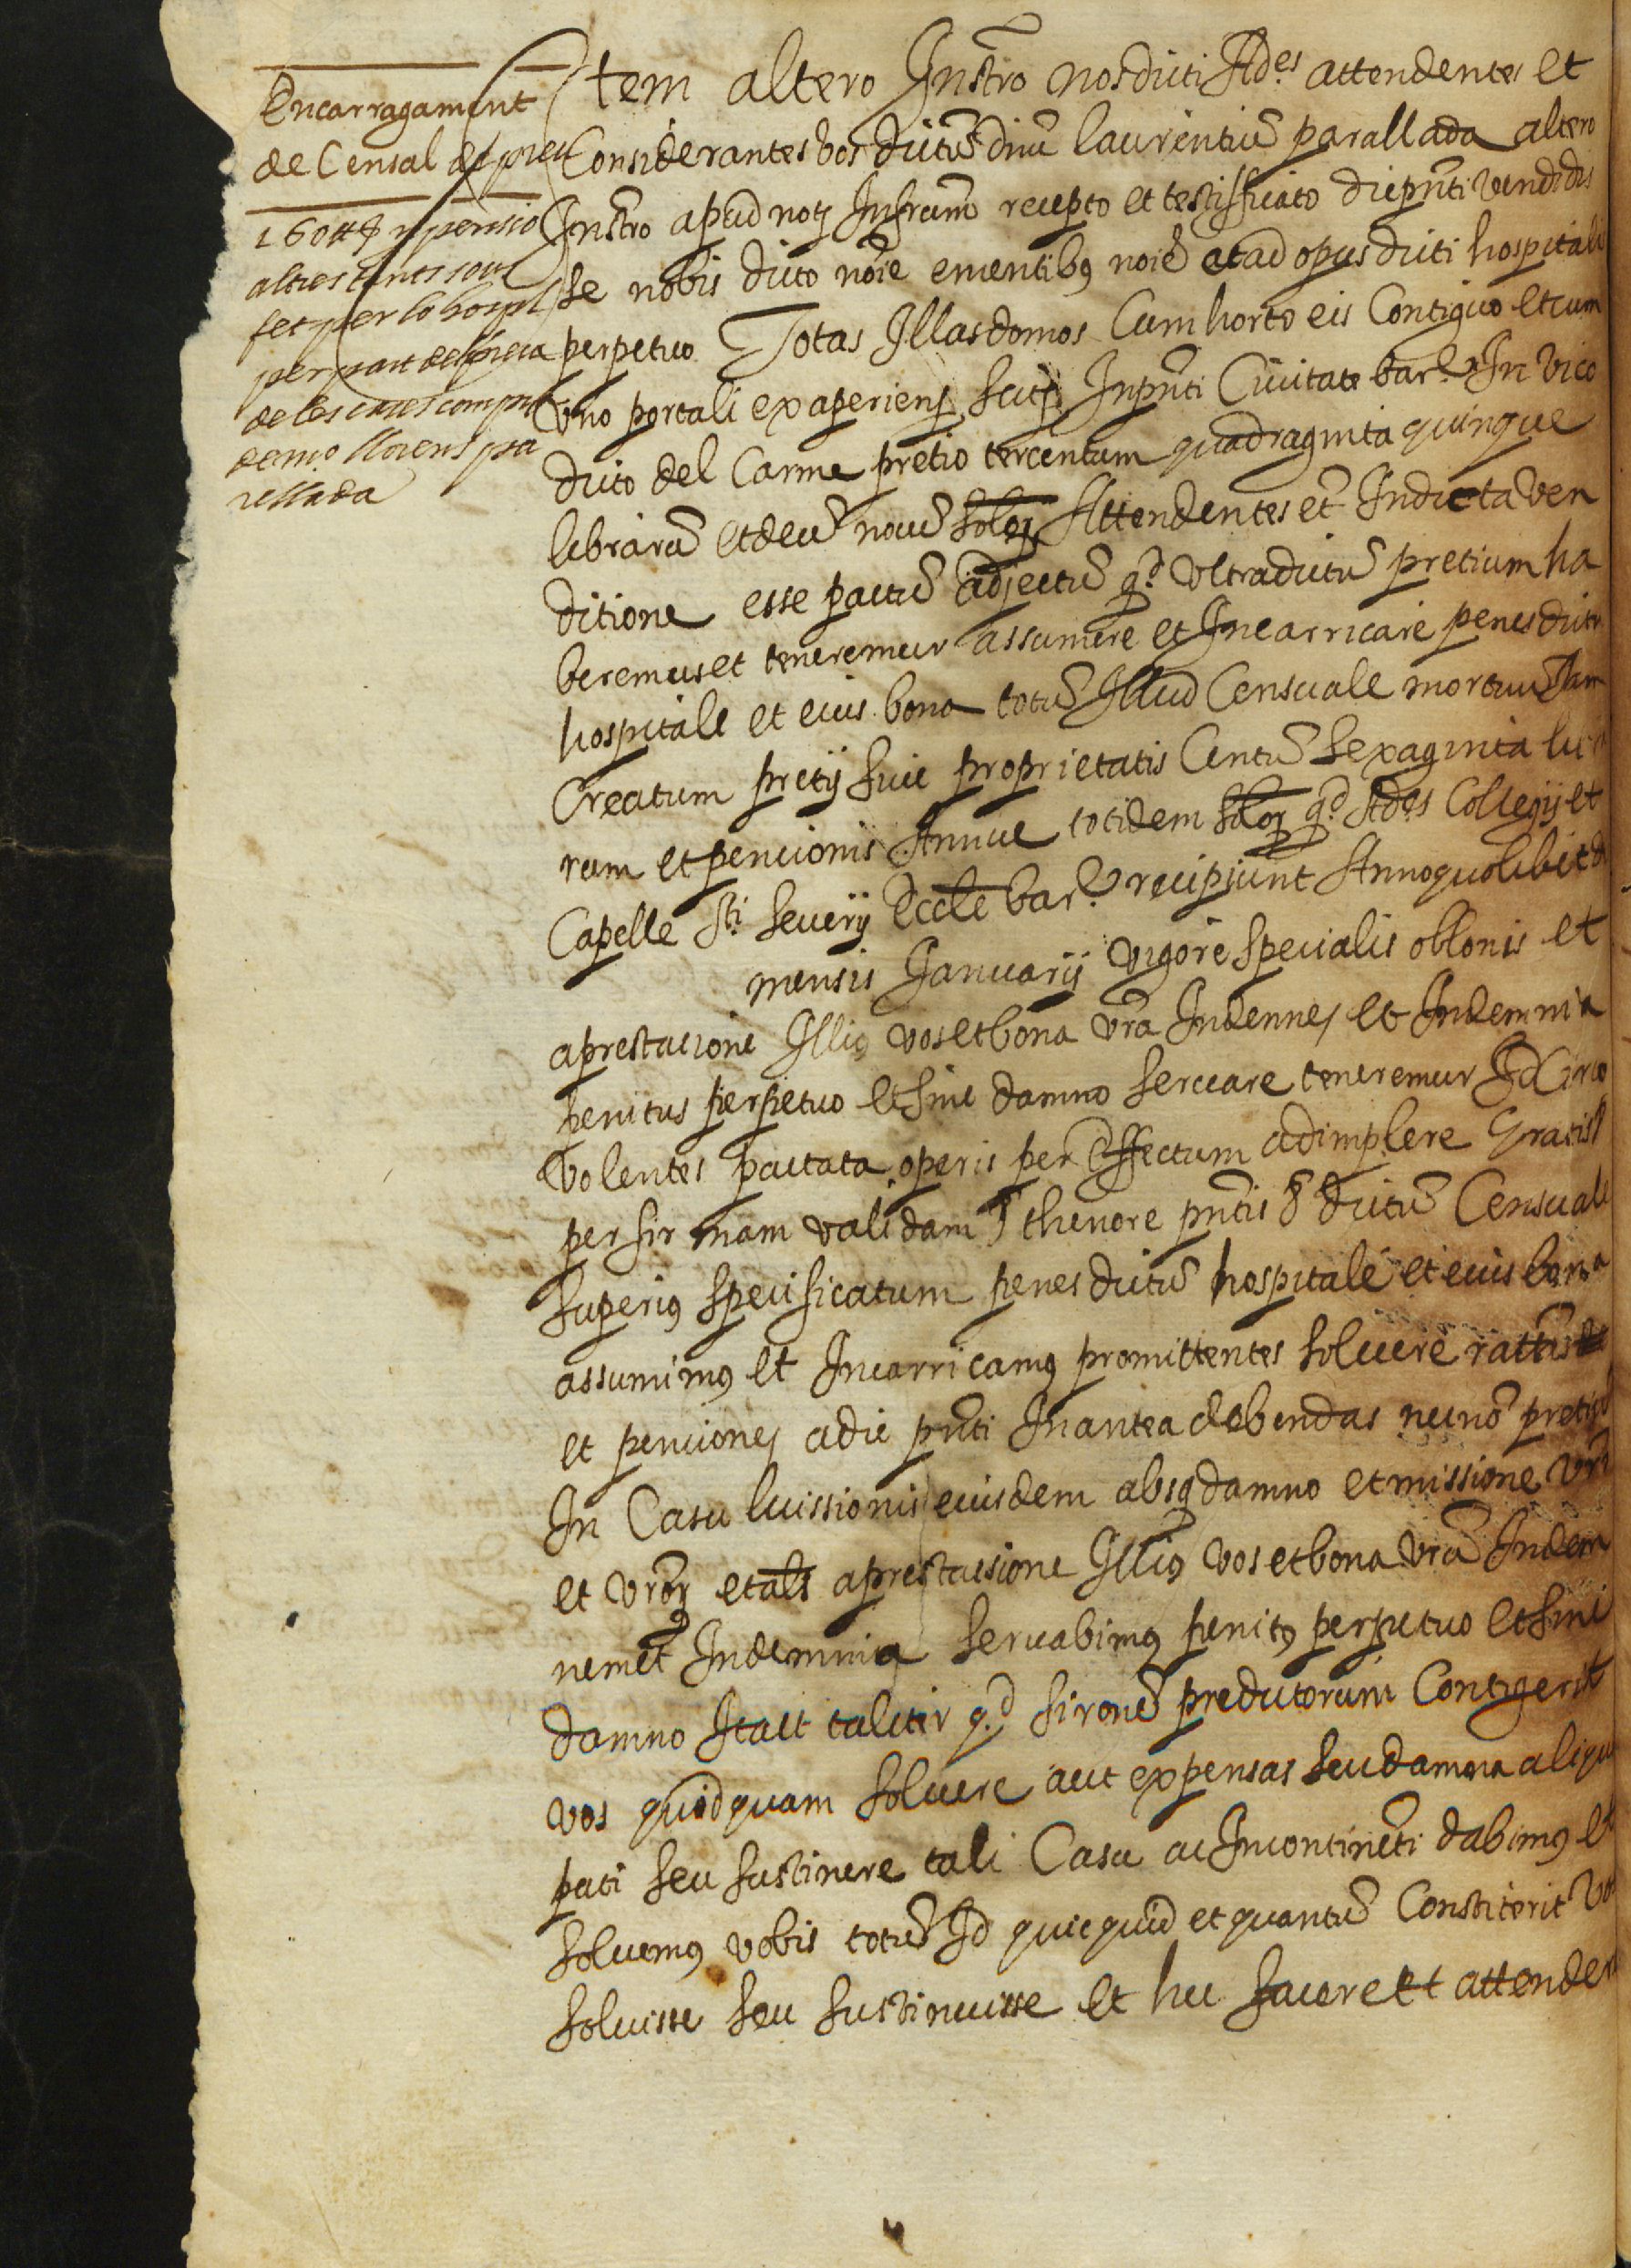 Encarragament
de Censal de preu
160 ₶ ꝑ pensio
altres tants sous
fet per lo hospl
per part del preu
de les cases compra
de mo. llorens pa
rellada
Item altero Instro nos dicti Ades attendentes et
Considerantes vos dictū dnū laurentiū parallada altero
Instro apud noty Infrum recepto et testifficato die pnti vendidis
se nobis dicto noie ementibꝰ noie et ad opus dicti hospitali
perpetuo Totas Illas domos Cum horto eis Contiguo et cum
vno portali exaperienꝭ scitꝭ In pnti Ciuitate bar. In vico
dicto del Carme pretio tercentum quadraginta quinque
librarū et decē nouē solꝝ Attendentes et In dicta ven
ditione esse pactū adjectū qd vltra dictū pretium ha
beremus et teneremur assumere et Incarricare penes dictū
hospitale et eius bona totū Illud Censuale mortuū Jam
Creatum pretij siue proprietatis Centū sexaginta libra
rum et pencionis Annue totidem solꝝ qd Ades Collegij et
Capelle Sti. Seuerij Eccle bar. recipiunt Anno quolibet d
mensis Januarij vigore specialis oblonis et
a prestacione Illiꝰ vos et bona vra Indennes et Indemnia
penitus perpetuo et sine damno seruare teneremur Id Circo
volentes pactata operis per Effectum adimplere Gratis
per firmam validam thenore pntis dictū Censuale
superiꝰ specificatum penes dictū hospitale et eius bona
assumimꝰ et Incarricamꝰ promittentes soluere rattas
et penciones a die pnti In antea debendas necnō pretiū
In Casu luissionis eiusdem absqꝫ damno et missione vri
et vrorꝝ et als a prestacione Illiꝰ vos et bona vra Indem
nem et Indemnia seruabimꝰ penitꝰ perpetuo et sine
damno Ita et taliter qd si rone predictorum Contigerit
vos quidquam soluere aut expensas seu damna aliqua
pati seu sustinere tali Casu ac Incontinēti dabimꝰ et
soluemꝰ vobis totū Id quicquid et quantū Constiterit vos
soluisse seu sustinuisse et hec facere et attendere